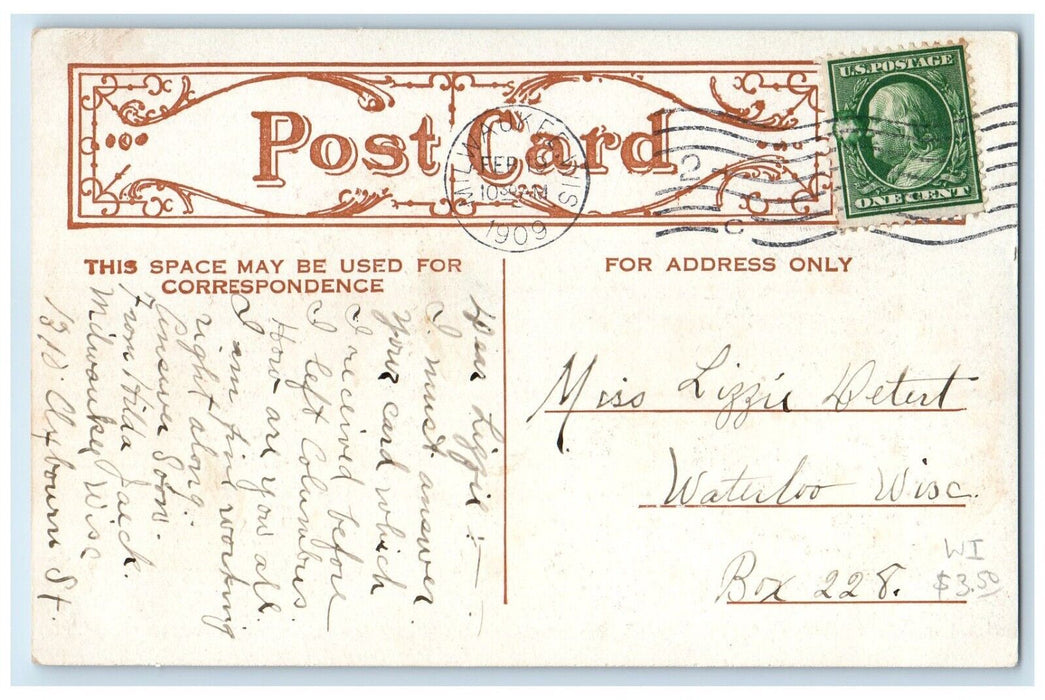 Post Card
MILWAUKEE, WIS.
FEB
10 30 AM
1909
2
C
U.S. POSTAGE
ONE CENT
THIS SPACE MAY BE USED FOR
CORRESPONDENCE
FOR ADDRESS ONLY
Dear Lizzie:—
I must answer
your card which
I received before
I left Columbus
How are you all.
I am fine working
right along.
Answer Soon.
From Hilda Jaeck.
Milwaukee Wisc
1310. Clybourn St.
Miss Lizzie Detert
Waterloo Wisc.
Box 228.
WI
$3.50